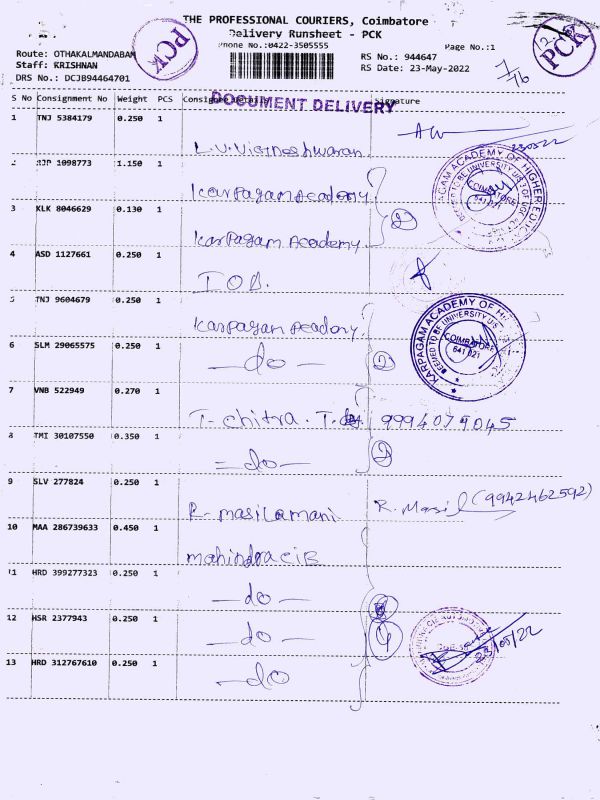 THE PROFESSIONAL COURIERS, Coimbatore
Delivery Runsheet - PCK
Phone No.:0422-3505555
Page No.:1
PCK
PCK
Route: OTHAKALMANDABAM
Staff: KRISHNAN
DRS No.: DCJB94464701
RS No.: 944647
RS Date: 23-May-2022
7/16
S No Consignment No Weight PCS Consignee Details Signature
DOCUMENT DELIVERY
1 TNJ 5384179 0.250 1
L.V. Vigneshwaran
230522
2 RJP 1098773 1.150 1
Karpagam Academy
KARPAGAM ACADEMY OF HIGHER EDUC
COIMBATORE
641 021
3 KLK 8046629 0.130 1
Karpagam Academy
2
4 ASD 1127661 0.250 1
I O B.
5 TNJ 9604679 0.250 1
Karpagam Acadony
KARPAGAM ACADEMY OF HI
DEEMED TO BE UNIVERSITY U/S
COIMBATORE
641 021
6 SLM 29065575 0.250 1
-do- 2
7 VNB 522949 0.270 1
T- Chitra . T. 9994079045
8 TMI 30107550 0.350 1
= do - 2
9 SLV 277824 0.250 1
R- masilamani R. Masil (9942462592)
10 MAA 286739633 0.450 1
mahindra CIE
11 HRD 399277323 0.250 1
-do-
12 HSR 2377943 0.250 1
-do- 4
23/05/22
13 HRD 312767610 0.250 1
-do